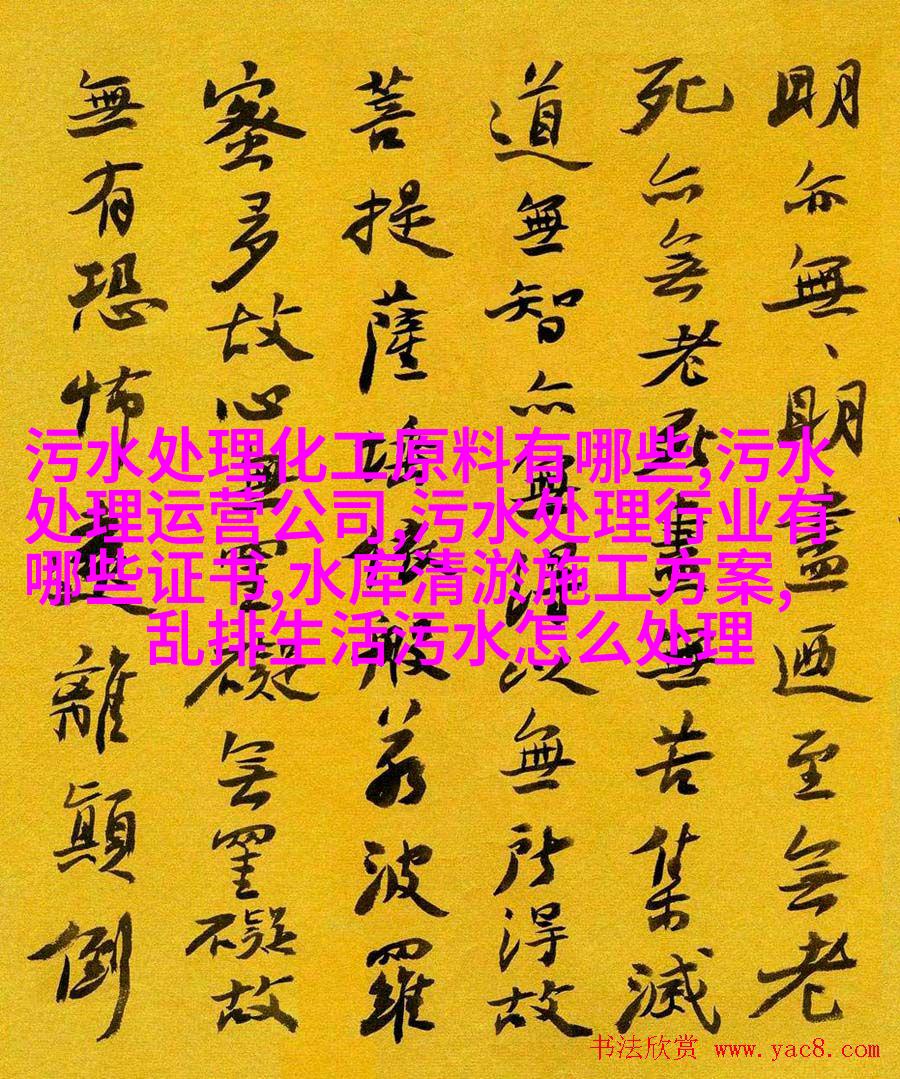 明亦無、明盡迺至無老
死亦無老死盡無苦集滅
道無智亦無得以無所得故
菩提薩埵依般若波羅
蜜多故心無罣礙無罣礙故
無有恐怖遠離顛倒
污水处理化工原料有哪些,污水
处理运营公司,污水处理行业有
哪些证书,水库清淤施工方案,
乱排生活污水怎么处理
书法欣赏 www.yac8.com